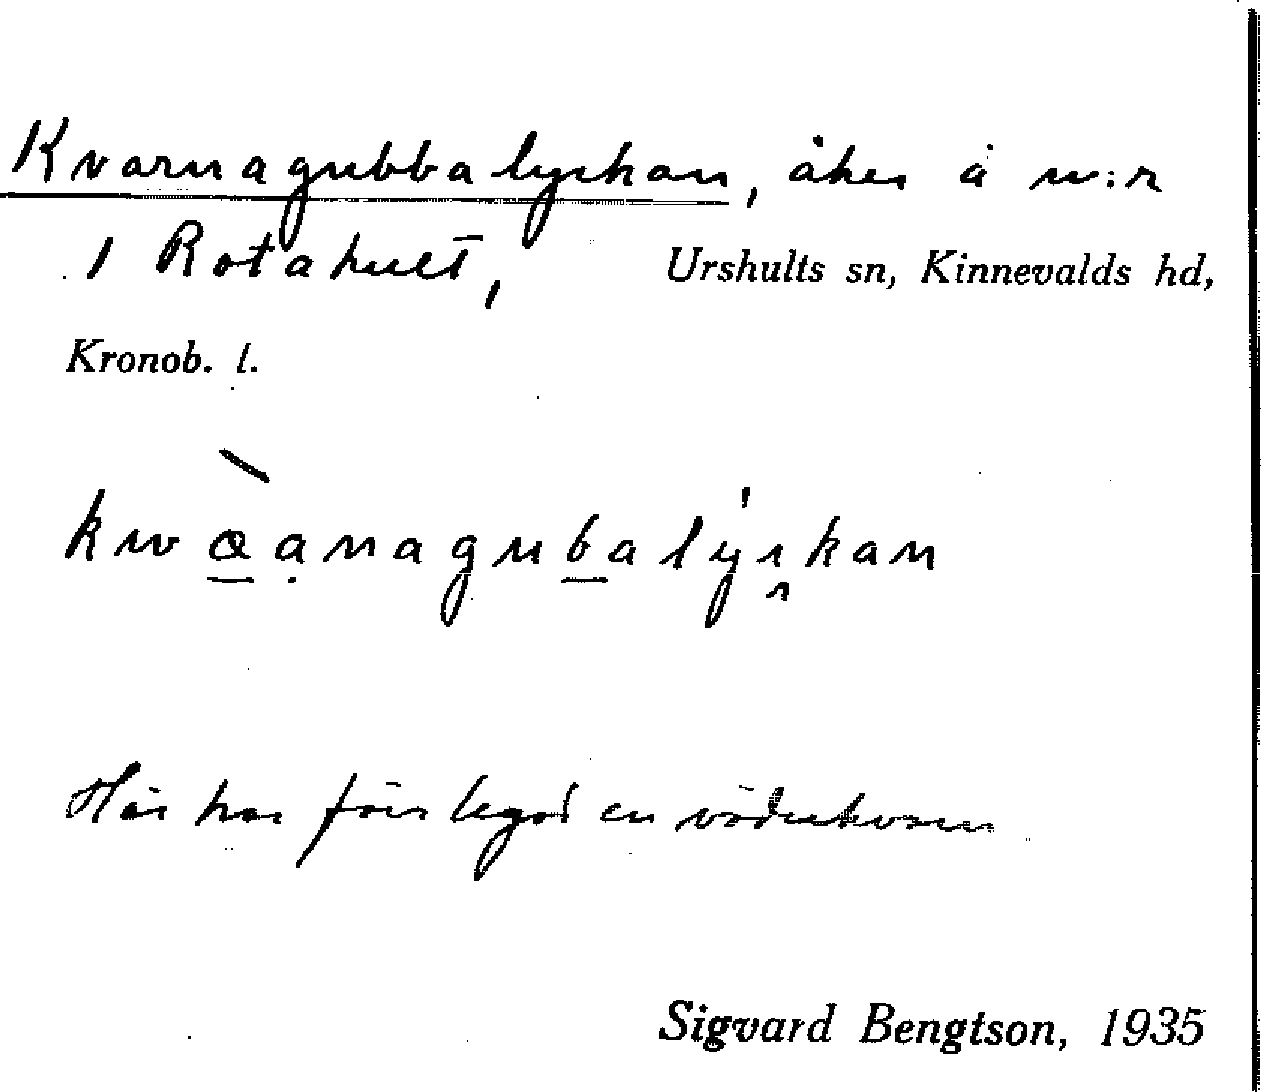 Kvarnagubbalyckan, åker å nr:r
1 Rotahult, Urshults sn, Kinnevalds hd,
Kronob. l.
Här har förr legat en väderkvarn
Sigvard Bengtson, 1935